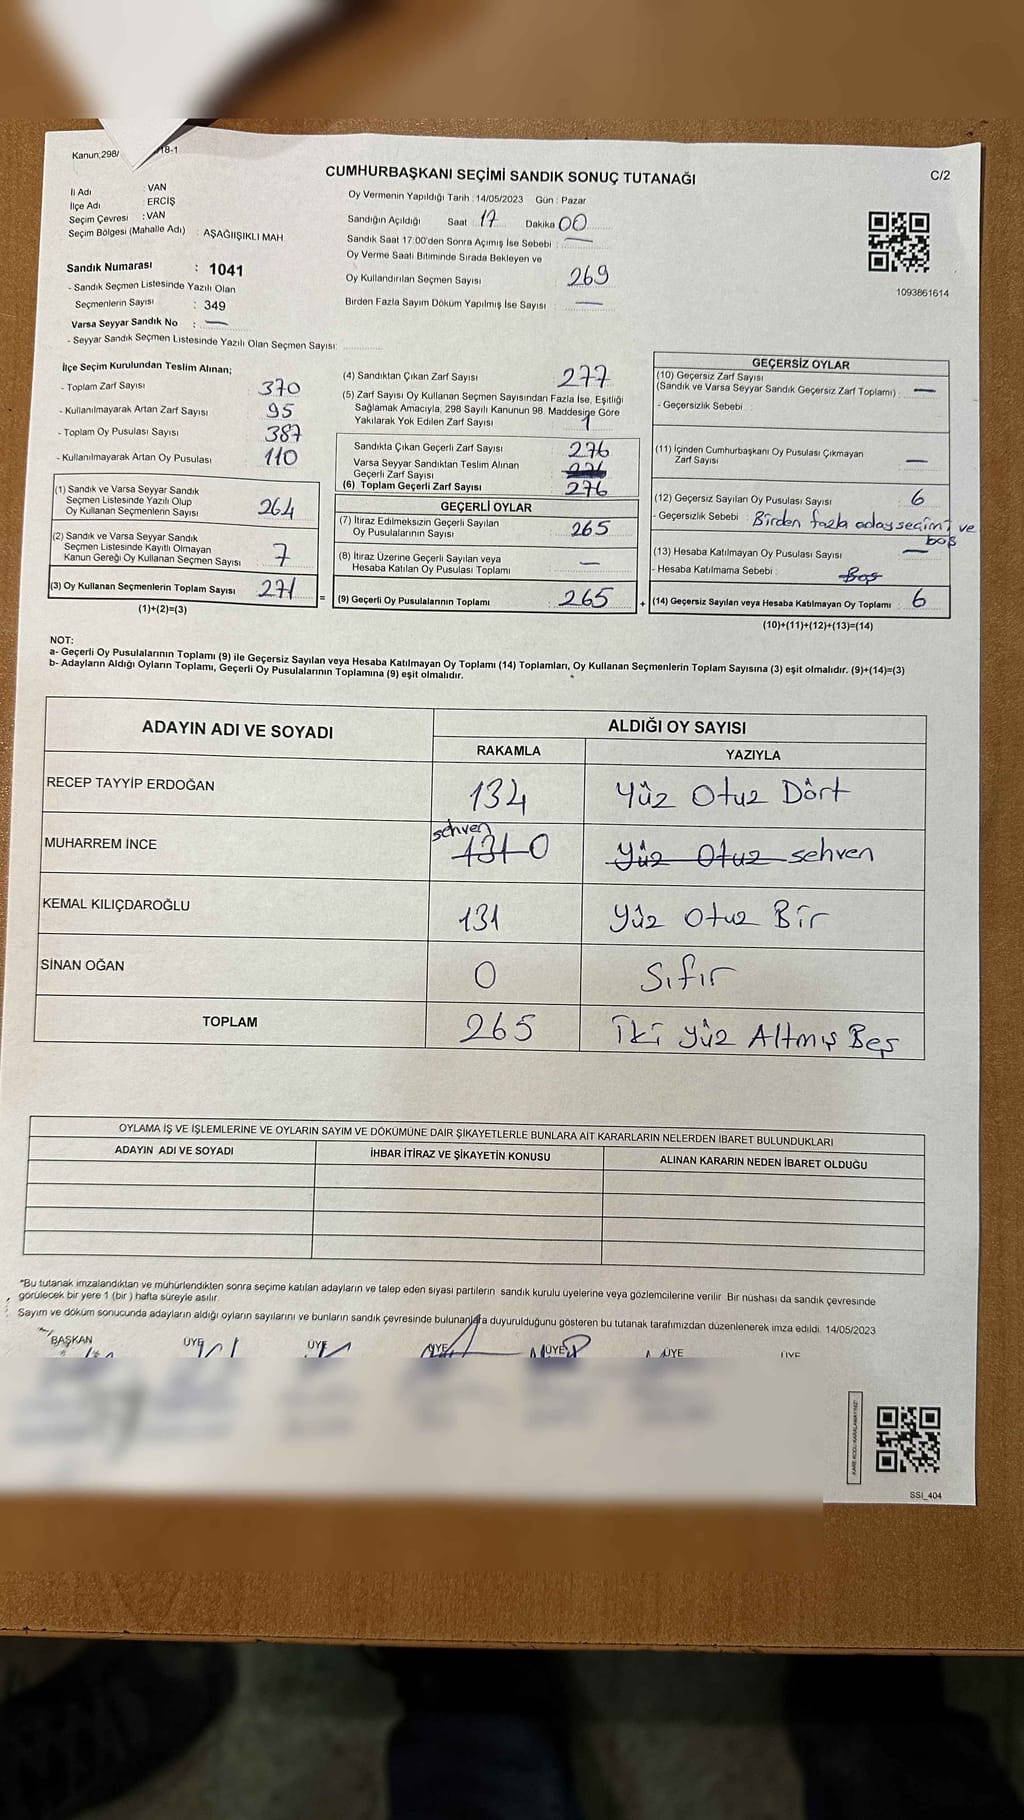 Kanun;298/ 18-1
CUMHURBAŞKANI SEÇİMİ SANDIK SONUÇ TUTANAĞI
C/2
İl Adı : VAN
İlçe Adı : ERCİŞ
Seçim Çevresi : VAN
Seçim Bölgesi (Mahalle Adı) : AŞAĞIIŞIKLI MAH
Sandık Numarası : 1041
- Sandık Seçmen Listesinde Yazılı Olan
Seçmenlerin Sayısı : 349
Varsa Seyyar Sandık No : —
- Seyyar Sandık Seçmen Listesinde Yazılı Olan Seçmen Sayısı:
Oy Vermenin Yapıldığı Tarih : 14/05/2023 Gün : Pazar
Sandığın Açıldığı Saat : 17 Dakika 00
Sandık Saat 17:00'den Sonra Açımış İse Sebebi : —
Oy Verme Saati Bitiminde Sırada Bekleyen ve
Oy Kullandırılan Seçmen Sayısı 269
Birden Fazla Sayım Döküm Yapılmış İse Sayısı : —
1093861614
İlçe Seçim Kurulundan Teslim Alınan;
- Toplam Zarf Sayısı 370
- Kullanılmayarak Artan Zarf Sayısı 95
- Toplam Oy Pusulası Sayısı 387
- Kullanılmayarak Artan Oy Pusulası 110
(1) Sandık ve Varsa Seyyar Sandık
Seçmen Listesinde Yazılı Olup
Oy Kullanan Seçmenlerin Sayısı 264
(2) Sandık ve Varsa Seyyar Sandık
Seçmen Listesinde Kayıtlı Olmayan
Kanun Gereği Oy Kullanan Seçmen Sayısı 7
(3) Oy Kullanan Seçmenlerin Toplam Sayısı 271 =
(1)+(2)=(3)
(4) Sandıktan Çıkan Zarf Sayısı 277
(5) Zarf Sayısı Oy Kullanan Seçmen Sayısından Fazla İse, Eşitliği
Sağlamak Amacıyla, 298 Sayılı Kanunun 98. Maddesine Göre
Yakılarak Yok Edilen Zarf Sayısı 1
Sandıkta Çıkan Geçerli Zarf Sayısı 276
Varsa Seyyar Sandıktan Teslim Alınan
Geçerli Zarf Sayısı
(6) Toplam Geçerli Zarf Sayısı 276
GEÇERLİ OYLAR
(7) İtiraz Edilmeksizin Geçerli Sayılan
Oy Pusulalarının Sayısı 265
(8) İtiraz Üzerine Geçerli Sayılan veya
Hesaba Katılan Oy Pusulası Toplamı —
(9) Geçerli Oy Pusulalarının Toplamı 265 +
GEÇERSİZ OYLAR
(10) Geçersiz Zarf Sayısı
(Sandık ve Varsa Seyyar Sandık Geçersiz Zarf Toplamı) : —
- Geçersizlik Sebebi :
(11) İçinden Cumhurbaşkanı Oy Pusulası Çıkmayan
Zarf Sayısı —
(12) Geçersiz Sayılan Oy Pusulası Sayısı 6
- Geçersizlik Sebebi : Birden fazla aday seçimi ve
boş
(13) Hesaba Katılmayan Oy Pusulası Sayısı —
- Hesaba Katılmama Sebebi : Boş
(14) Geçersiz Sayılan veya Hesaba Katılmayan Oy Toplamı 6
(10)+(11)+(12)+(13)=(14)
NOT:
a- Geçerli Oy Pusulalarının Toplamı (9) ile Geçersiz Sayılan veya Hesaba Katılmayan Oy Toplamı (14) Toplamları, Oy Kullanan Seçmenlerin Toplam Sayısına (3) eşit olmalıdır. (9)+(14)=(3)
b- Adayların Aldığı Oyların Toplamı, Geçerli Oy Pusulalarının Toplamına (9) eşit olmalıdır.
ADAYIN ADI VE SOYADI
ALDIĞI OY SAYISI
RAKAMLA YAZIYLA
RECEP TAYYİP ERDOĞAN 134 Yüz Otuz Dört
MUHARREM İNCE sehven 131 0 Yüz Otuz sehven
KEMAL KILIÇDAROĞLU 131 Yüz Otuz Bir
SİNAN OĞAN 0 Sıfır
TOPLAM 265 İki yüz Altmış Beş
OYLAMA İŞ VE İŞLEMLERİNE VE OYLARIN SAYIM VE DÖKÜMÜNE DAİR ŞİKAYETLERLE BUNLARA AİT KARARLARIN NELERDEN İBARET BULUNDUKLARI
ADAYIN ADI VE SOYADI
İHBAR İTİRAZ VE ŞİKAYETİN KONUSU
ALINAN KARARIN NEDEN İBARET OLDUĞU
*Bu tutanak imzalandıktan ve mühürlendikten sonra seçime katılan adayların ve talep eden siyasi partilerin sandık kurulu üyelerine veya gözlemcilerine verilir. Bir nüshası da sandık çevresinde
görülecek bir yere 1 (bir) hafta süreyle asılır.
Sayım ve döküm sonucunda adayların aldığı oyların sayılarını ve bunların sandık çevresinde bulunanlara duyurulduğunu gösteren bu tutanak tarafımızdan düzenlenerek imza edildi. 14/05/2023
BAŞKAN ÜYE ÜYE ÜYE ÜYE ÜYE ÜYE
KARE KODU KARALAMAYINIZ!
SSI_404